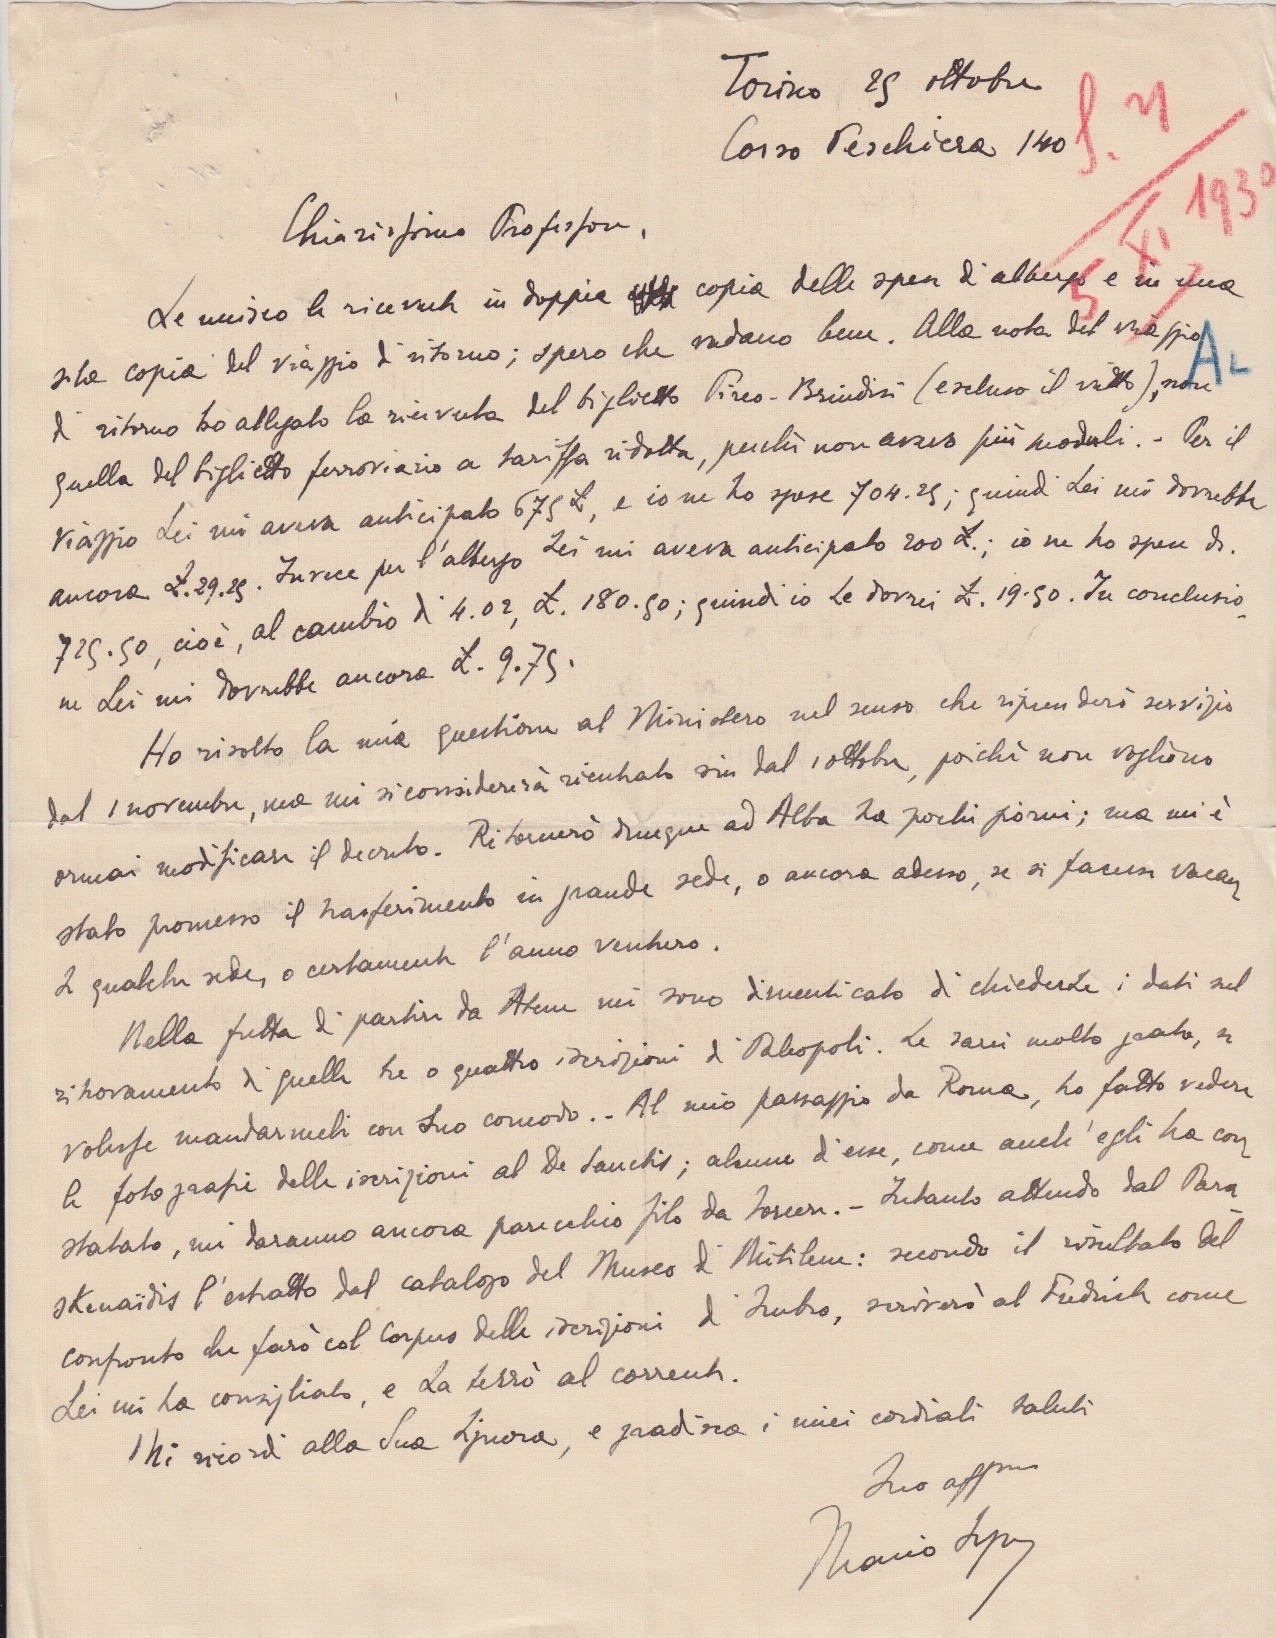 Torino 25 ottobre
Corso Peschiera 140
S. 21
5 XI 1930
AL
Chiarissimo Professore,
Le unisco le ricevute in doppia copia delle spese di albergo e in una
sola copia del viaggio di ritorno; spero che vadano bene. Alla nota del viaggio
di ritorno ho allegato la ricevuta del biglietto Pireo-Brindisi (escluso il vitto), non
quella del biglietto ferroviario a tariffa ridotta, perchè non avevo più moduli. - Per il
viaggio Lei mi aveva anticipato 675 £, e io ne ho spese 704.25; quindi Lei mi dovrebbe
ancora £. 29.25. Invece per l'albergo Lei mi aveva anticipato 200 £.; io ne ho spese dr.
725.50, cioè, al cambio di 4.02, £. 180.50; quindi io Le dovrei £. 19.50. In conclusio-
ne Lei mi dovrebbe ancora £. 9.75.
Ho risolto la mia questione al Ministero nel senso che riprenderò servizio
dal 1 novembre, ma mi si considererà rientrato sin dal 1 ottobre, poichè non vogliono
ormai modificare il decreto. Ritornerò dunque ad Alba tra pochi giorni; ma mi è
stato promesso il trasferimento in grande sede, o ancora adesso, se si facesse vacan-
te qualche sede, o certamente l'anno venturo.
Nella fretta di partire da Atene mi sono dimenticato di chiederLe i dati sul
ritrovamento di quelle tre o quattro iscrizioni di Paleopoli. Le sarei molto grato, se
volesse mandarmeli con Suo comodo. - Al mio passaggio da Roma, ho fatto vedere
le fotografie delle iscrizioni al De Sanctis; alcune d'esse, come anch'egli ha con-
statato, mi daranno ancora parecchio filo da torcere. - Intanto attendo dal Para-
skenaïdis l'estratto dal catalogo del Museo di Mitilene: secondo il risultato del
confronto che farò col Corpus delle iscrizioni d'Imbro, scriverò al Fredrich come
Lei mi ha consigliato, e La terrò al corrente.
Mi ricordi alla Sua Signora, e gradisca i miei cordiali saluti
Suo affmo
Mario Segre